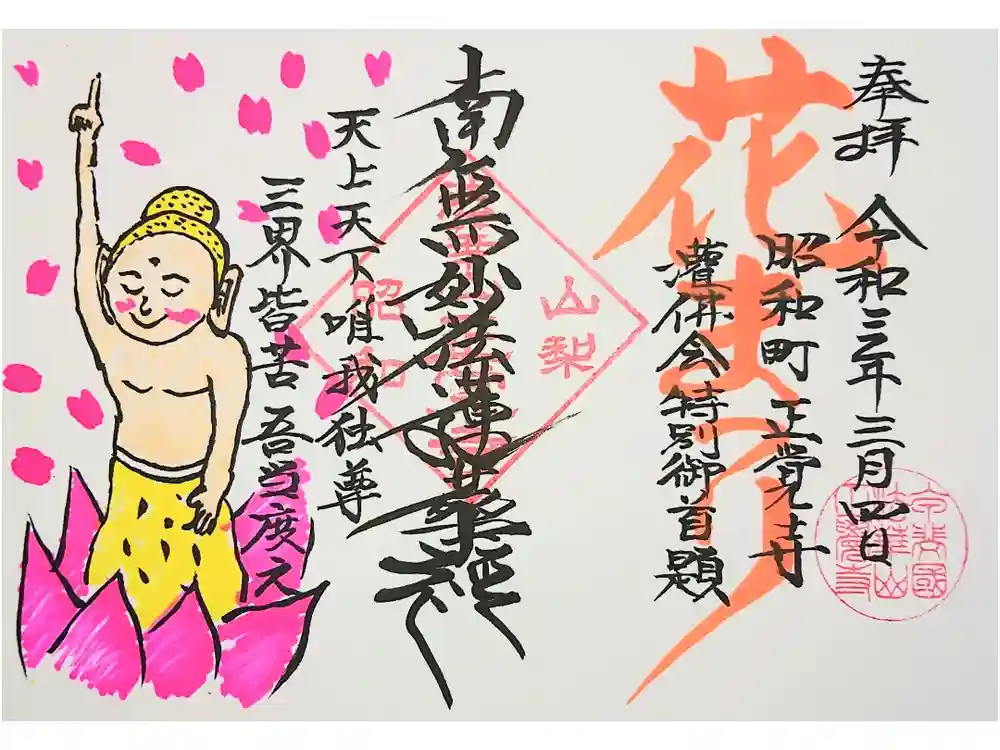 奉拝 令和三年三月四日
花まつり
昭和町 正覚寺
灌仏会特別御首題
山梨
南無妙法蓮華経
昭和
天上天下唯我独尊
三界皆苦吾当度之